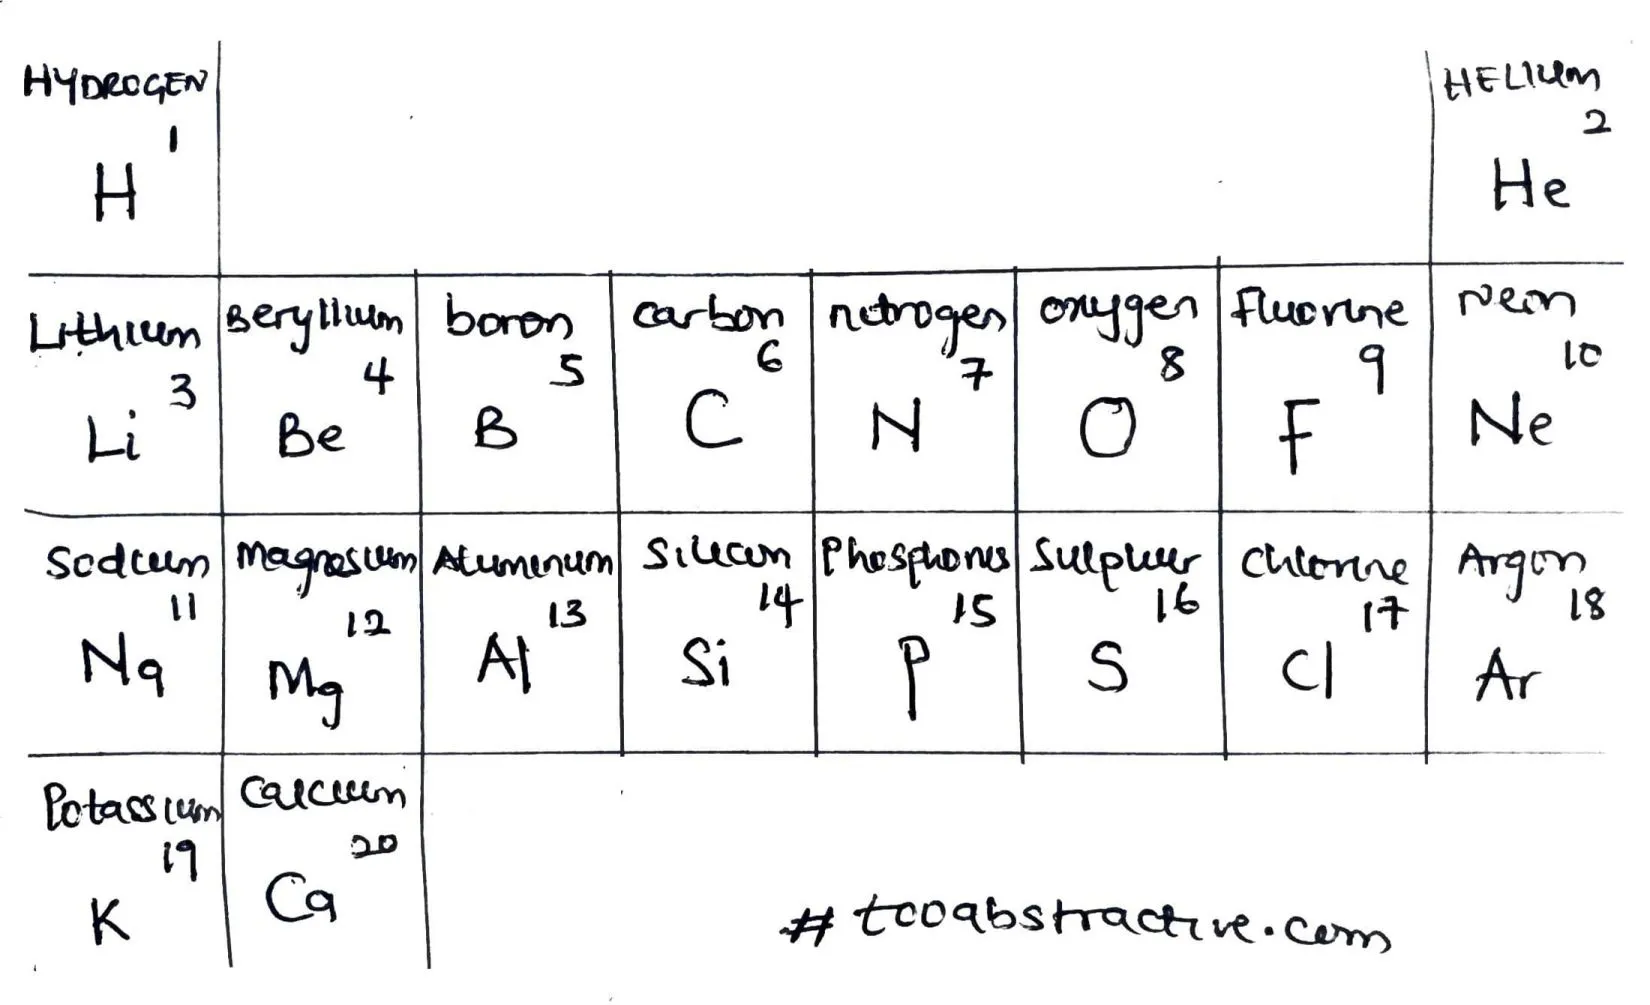 HYDROGEN
1
H
HELIUM
2
He
Lithium
3
Li
Beryllium
4
Be
boron
5
B
carbon
6
C
nitrogen
7
N
oxygen
8
O
fluorine
9
F
neon
10
Ne
Sodium
11
Na
Magnesium
12
Mg
Aluminum
13
Al
Silicon
14
Si
Phosphorus
15
P
Sulphur
16
S
Chlorine
17
Cl
Argon
18
Ar
Potassium
19
K
Calcium
20
Ca
# tooabstractive.com